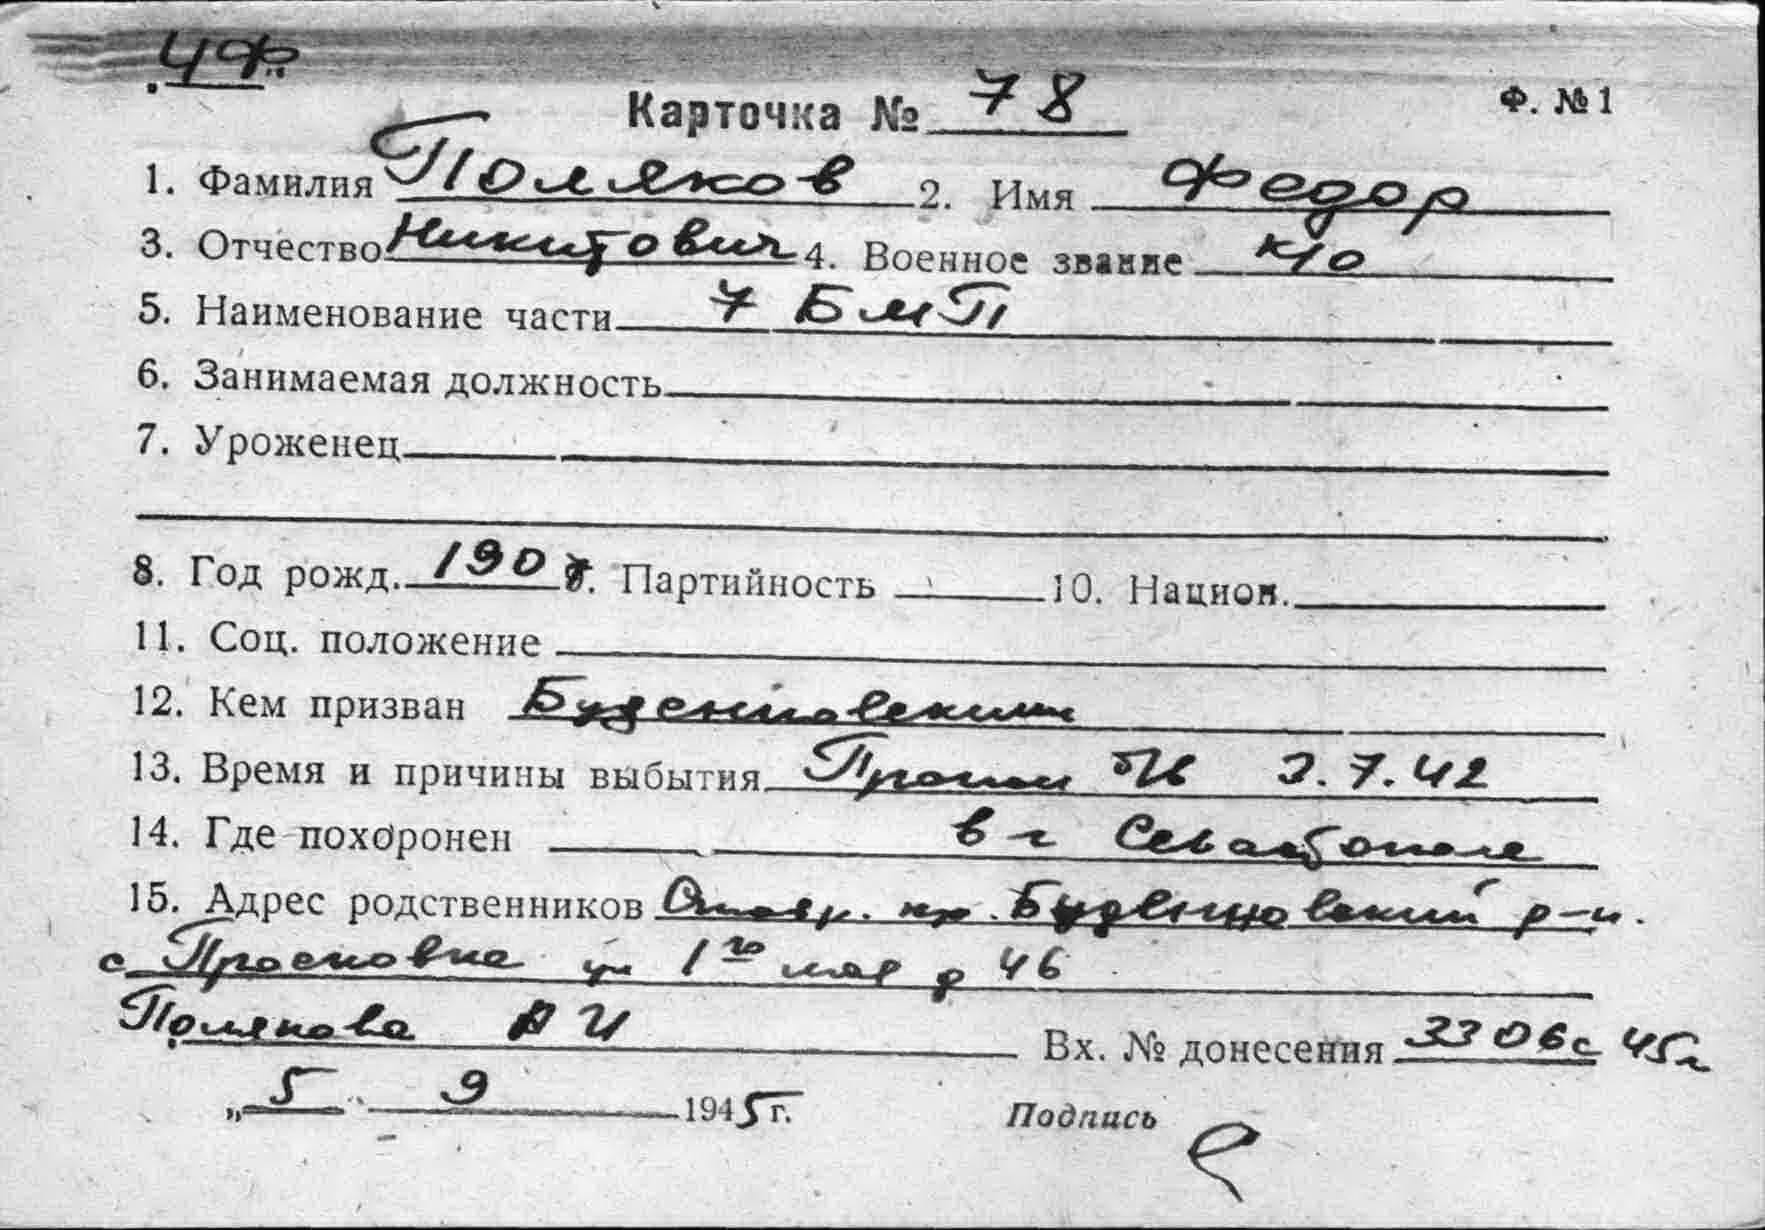 ЧФ
Карточка № 78 Ф. № 1
1. Фамилия Поляков 2. Имя Федор
3. Отчество Никитович 4. Военное звание к/о
5. Наименование части 7 БМП
6. Занимаемая должность
7. Уроженец
8. Год рожд. 190 Партийность 10. Национ.
11. Соц. положение
12. Кем призван Буденновским
13. Время и причины выбытия Пропал б/в 3.7.42
14. Где похоронен в г Севастополе
15. Адрес родственников Ставр. кр. Буденновский р-н.
с Прасковка ул 1го мая д 46
Полякова А И Вх. № донесения 3306с 45г
„5" 9 1945 г. Подпись